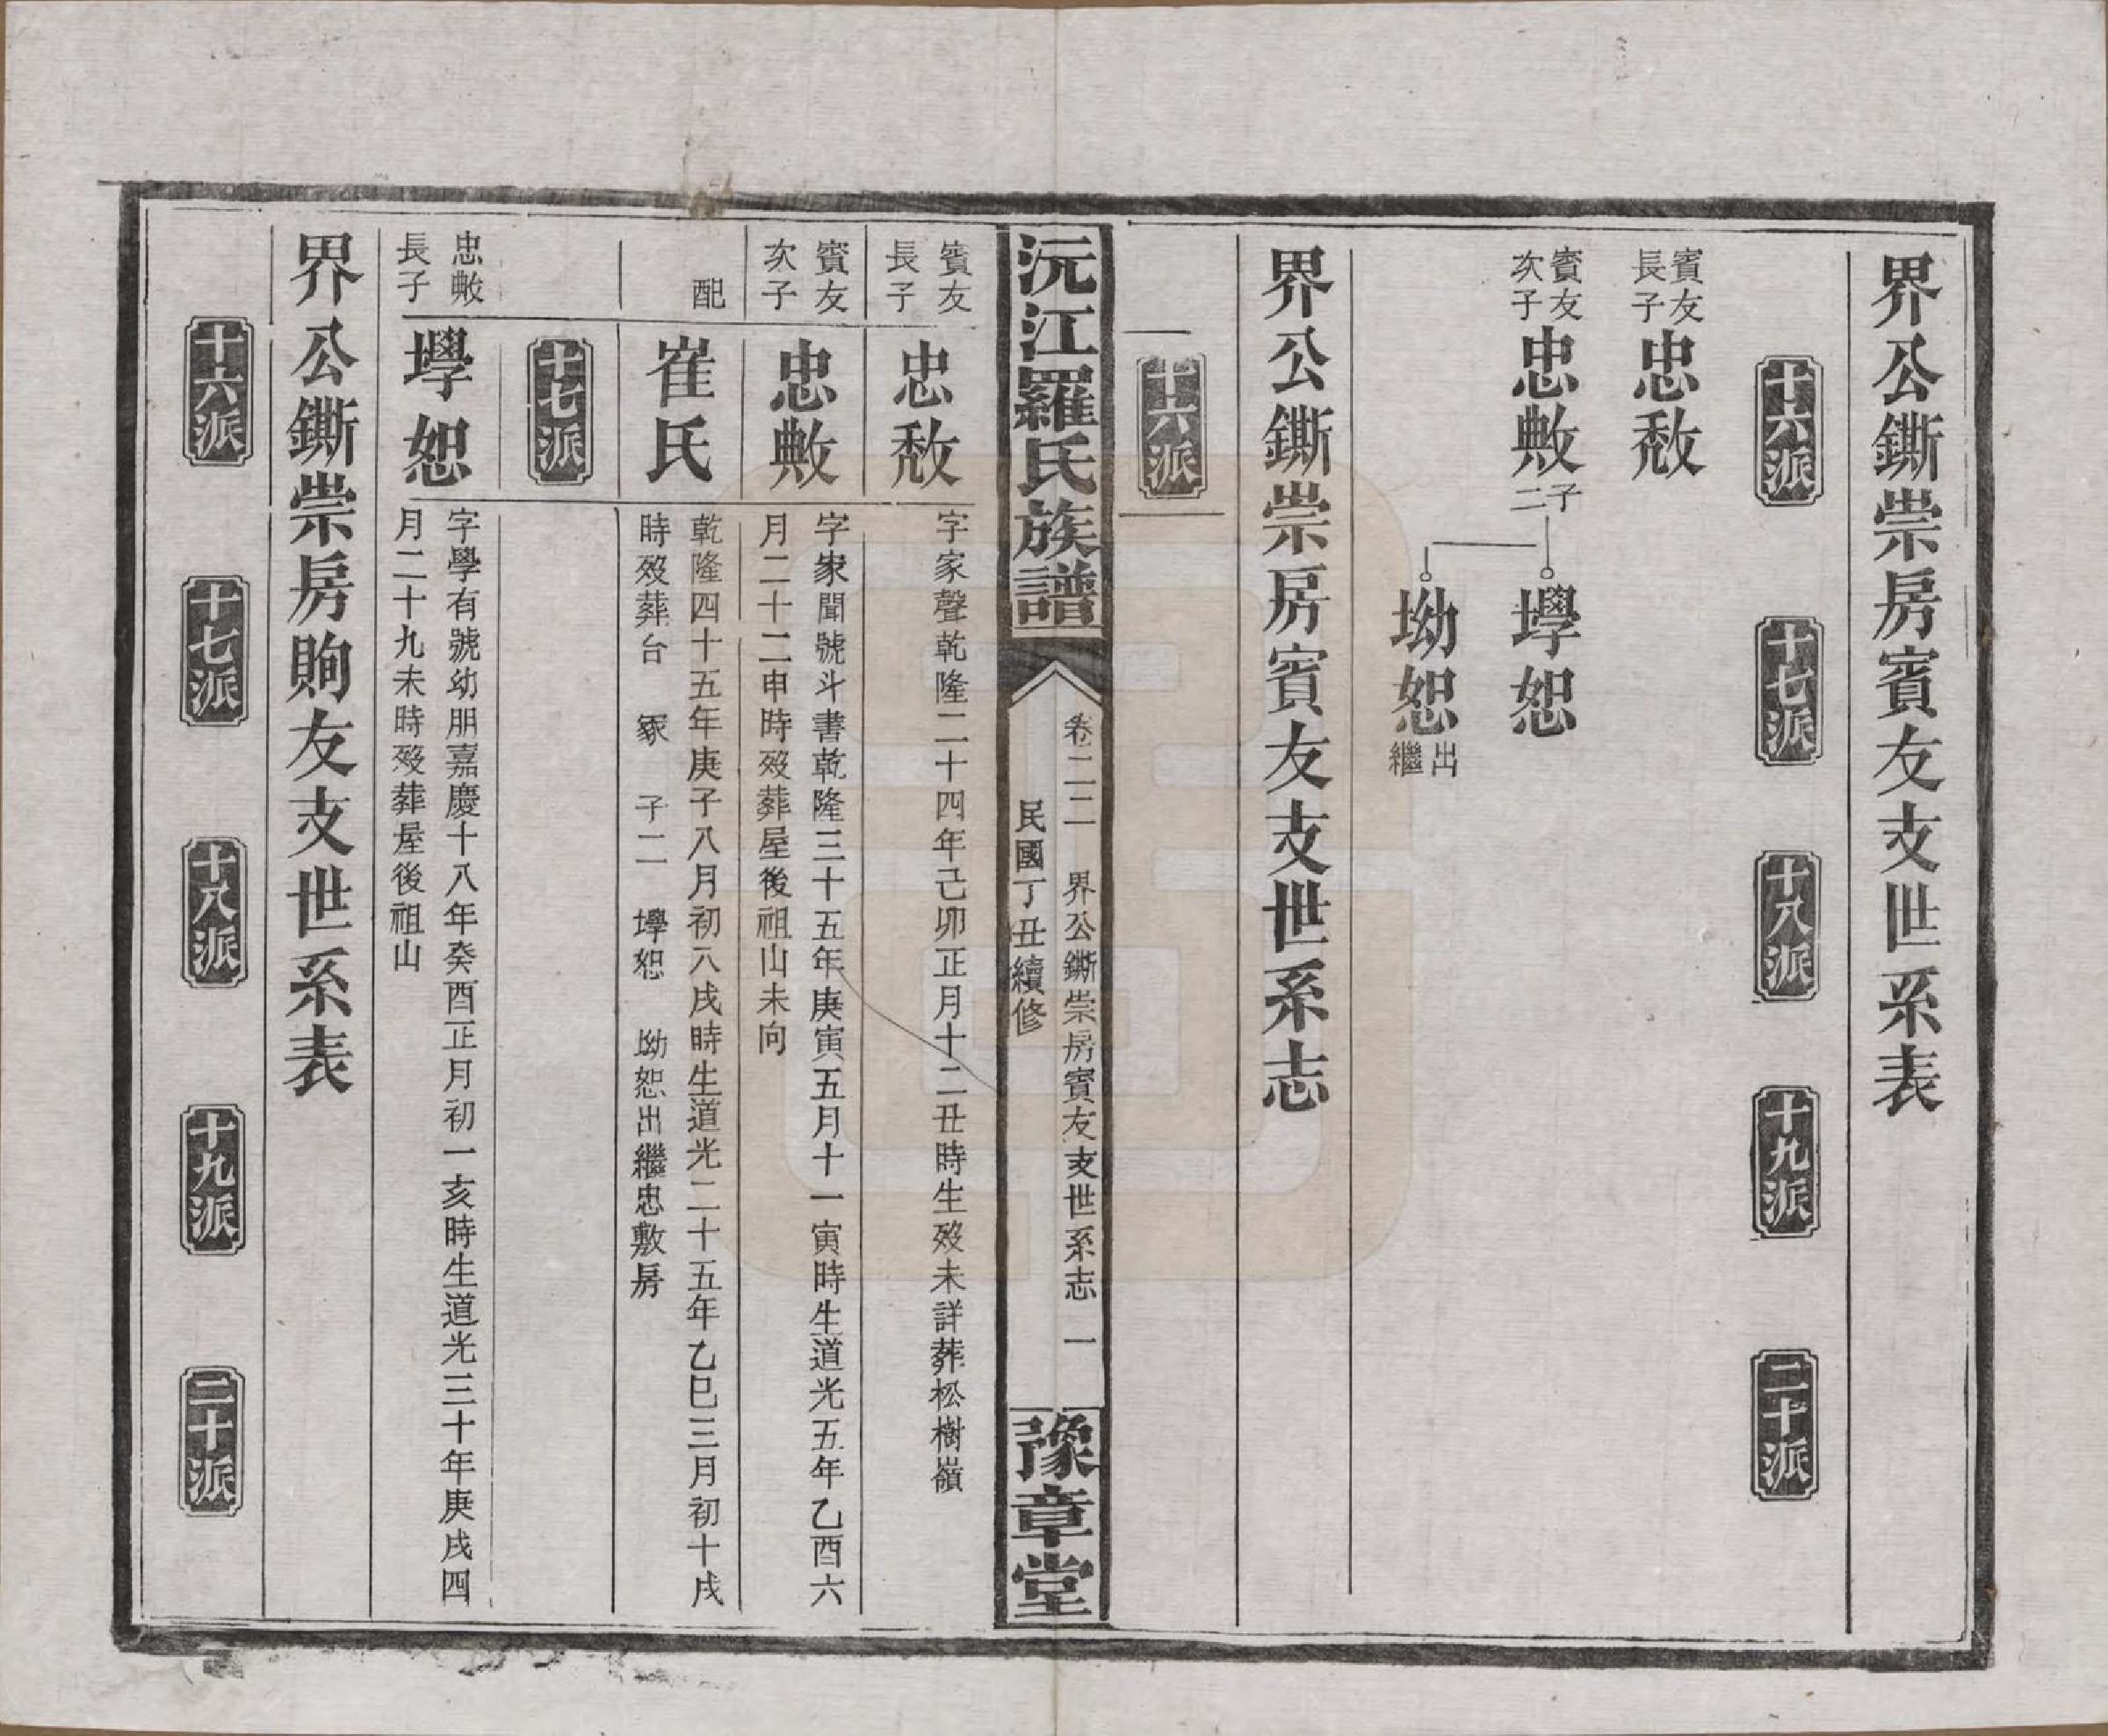 界公鐁崇房賓友支世系表
十六派
十七派
十八派
十九派
二十派
賓友長子
忠敄
賓友次子
忠敟
二子
壆恕
坳恕
出繼
界公鐁崇房賓友支世系志
十六派
沅江羅氏族譜
卷二二
界公鐁崇房賓友支世系志
一
民國丁丑續修
豫章堂
賓友長子
忠敄
字家聲乾隆二十四年己卯正月十二丑時生歿未詳葬松樹嶺
賓友次子
忠敟
字家聞號斗書乾隆三十五年庚寅五月十一寅時生道光五年乙酉六
月二十二申時歿葬屋後祖山未向
配
崔氏
乾隆四十五年庚子八月初六戌時生道光二十五年乙巳三月初十戌
時歿葬台 冢 子二 壆恕 坳恕出繼忠敷房
十七派
忠敟長子
壆恕
字學有號幼朋嘉慶十八年癸酉正月初一亥時生道光三十年庚戌四
月二十九未時歿葬屋後祖山
界公鐁崇房眴友支世系表
十六派
十七派
十八派
十九派
二十派